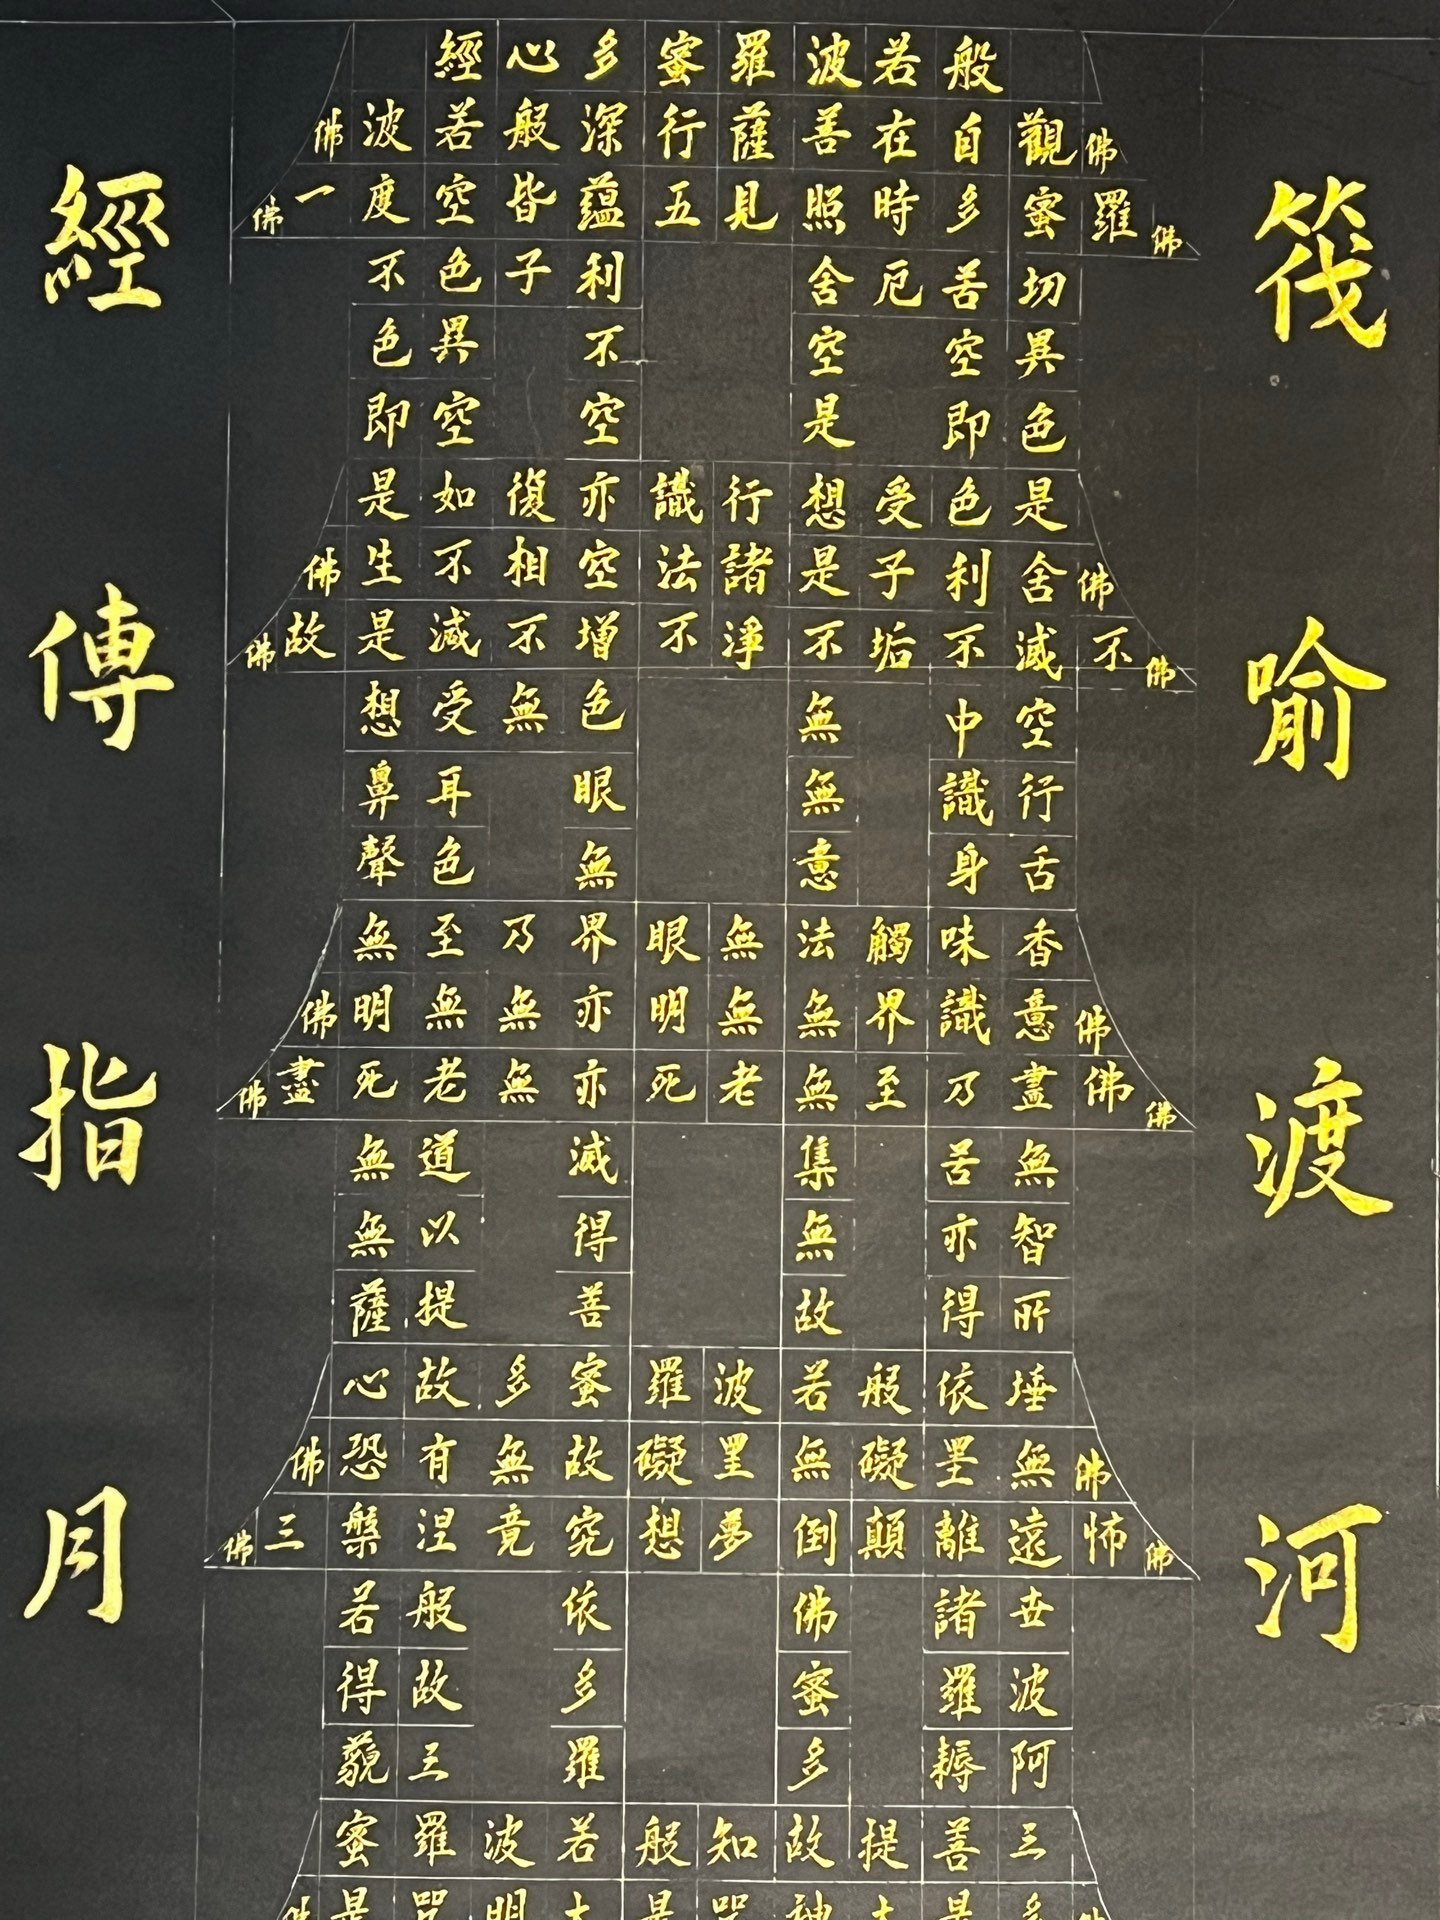 筏喻渡河
般若波羅蜜多心經
佛觀自在菩薩行深般若波佛
佛羅蜜多時照見五蘊皆空度一佛
切苦厄舍利子色不
異空空不異色
色即是空空即
是色受想行識亦復如是
佛舍利子是諸法空相不生佛
佛不滅不垢不淨不增不減是故佛
空中無色無受想
行識無眼耳鼻
舌身意無色聲
香味觸法無眼界乃至無
佛意識界無無明亦無無明佛
佛佛盡乃至無老死亦無老死盡佛
無苦集滅道無
智亦無得以無
所得故菩提薩
埵依般若波羅蜜多故心
佛無罣礙無罣礙故無有恐佛
佛怖遠離顛倒夢想究竟涅槃三佛
世諸佛依般若
波羅蜜多故得
阿耨多羅三藐
三菩提故知般若波羅蜜
佛多是大神咒是大明咒是佛
經傳指月